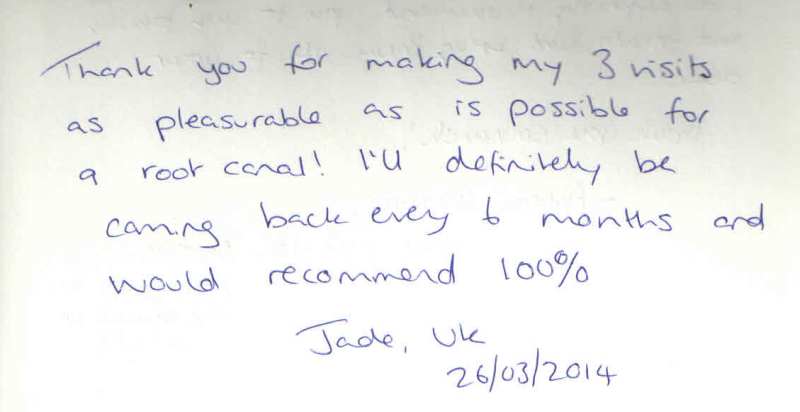 Thank you for making my 3 visits
as pleasurable as is possible for
a root canal! I'll definitely be
coming back every 6 months and
would recommend 100%
Jade, UK
26/03/2014